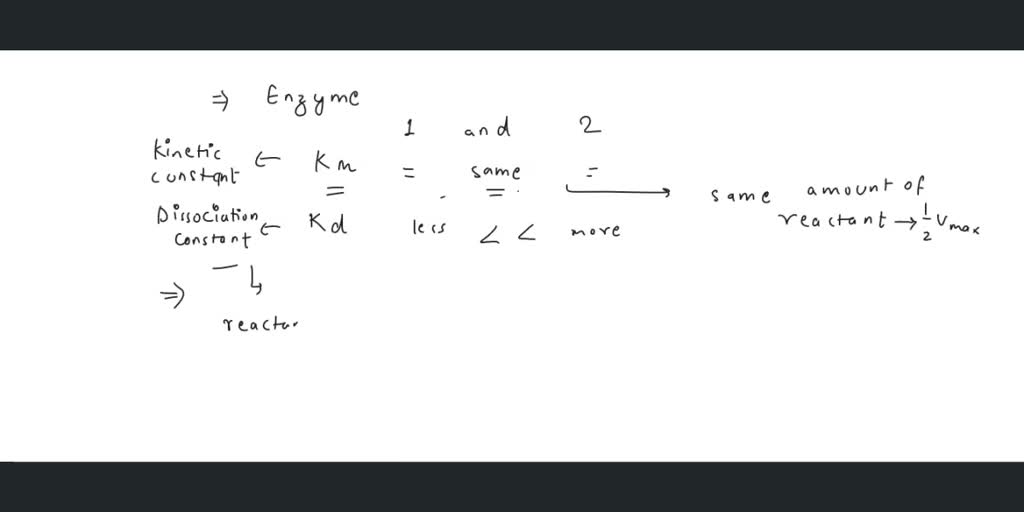 ⇒ Enzyme
1 and 2
Kinetic constant ← Km = same = → same amount of reactant → 1/2 Vmax
Dissociation constant ← Kd less << more
⇒ ↳
reactan